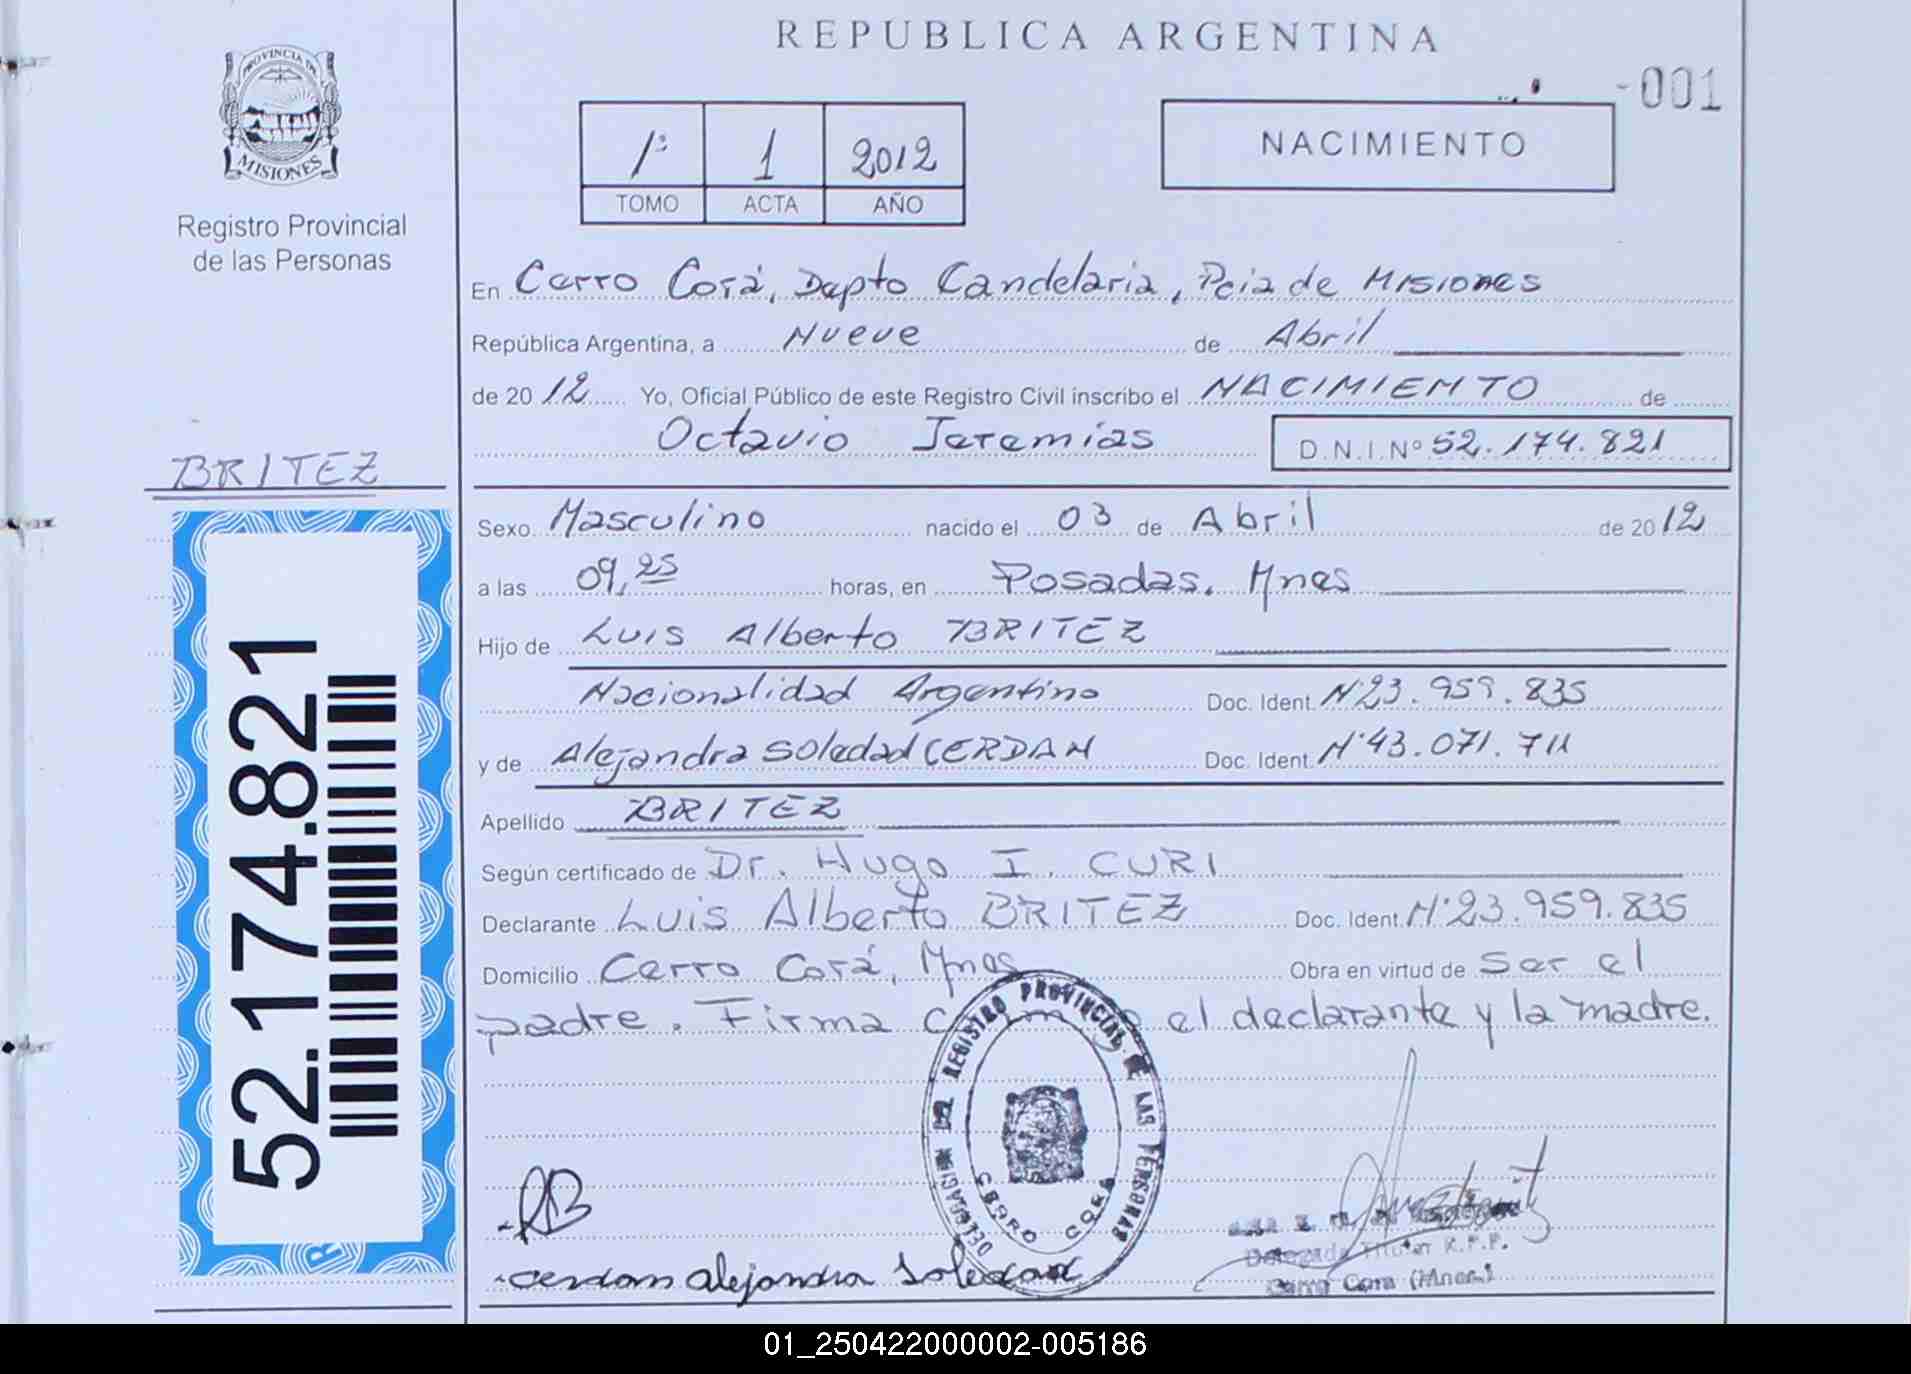 REPUBLICA ARGENTINA
-001
PROVINCIA DE
MISIONES
Registro Provincial
de las Personas
1º 1 2012
TOMO ACTA AÑO
NACIMIENTO
En Cerro Corá, Dapto Candelaria, Pcia de Misiones
República Argentina, a Nueve de Abril
de 2012 Yo, Oficial Público de este Registro Civil inscribo el NACIMIENTO de
Octavio Jeremías D.N.I.Nº 52.174.821
BRITEZ
Sexo Masculino nacido el 03 de Abril de 2012
a las 09,25 horas, en Posadas, Mnes
Hijo de Luis Alberto BRITEZ
Nacionalidad Argentino Doc. Ident. Nº23.959.835
y de Alejandra Soledad CERDAN Doc. Ident. Nº43.071.711
Apellido BRITEZ
Según certificado de Dr. Hugo I. CURI
Declarante Luis Alberto BRITEZ Doc. Ident. Nº23.959.835
Domicilio Cerro Corá, Mnes Obra en virtud de ser el
padre. Firma el declarante y la madre.
52.174.821
DELEGACION DEL REGISTRO PROVINCIAL DE LAS PERSONAS
CERRO CORA
Cerdan Alejandra Soledad
Delegada Titular R.P.P.
Cerro Cora (Mnes.)
01_250422000002-005186